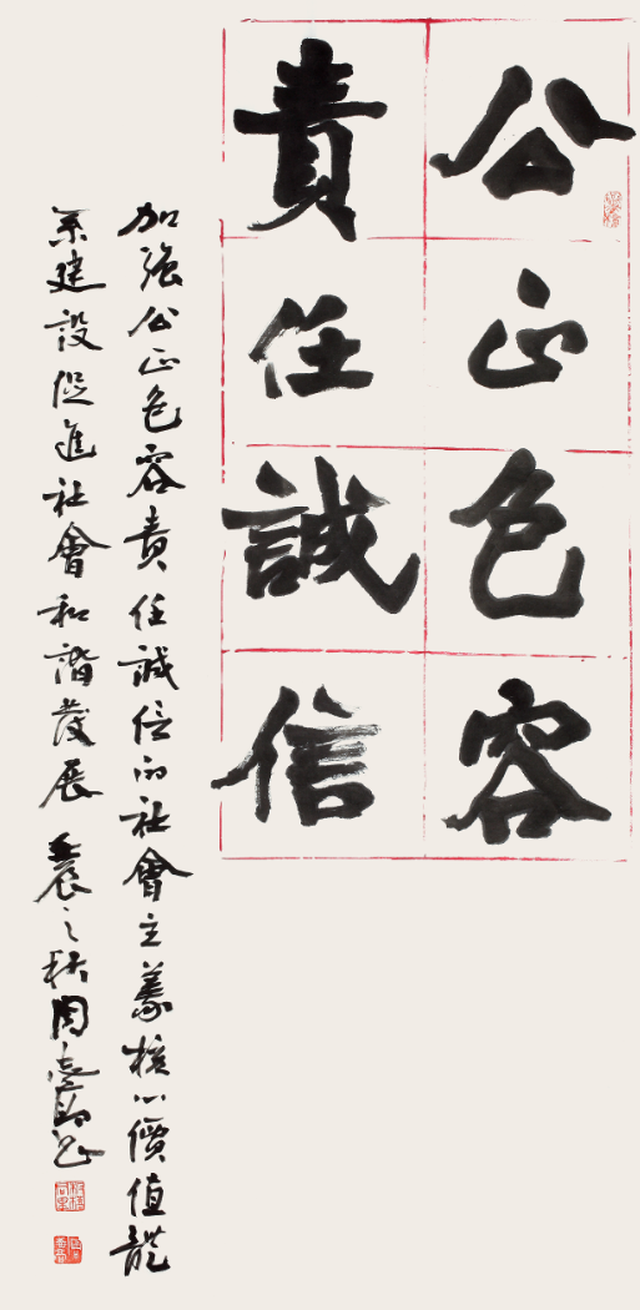 公正包容
責任誠信
加強公正包容責任誠信的社會主義核心價值體
系建設促進社會和諧發展 壬辰之秋周